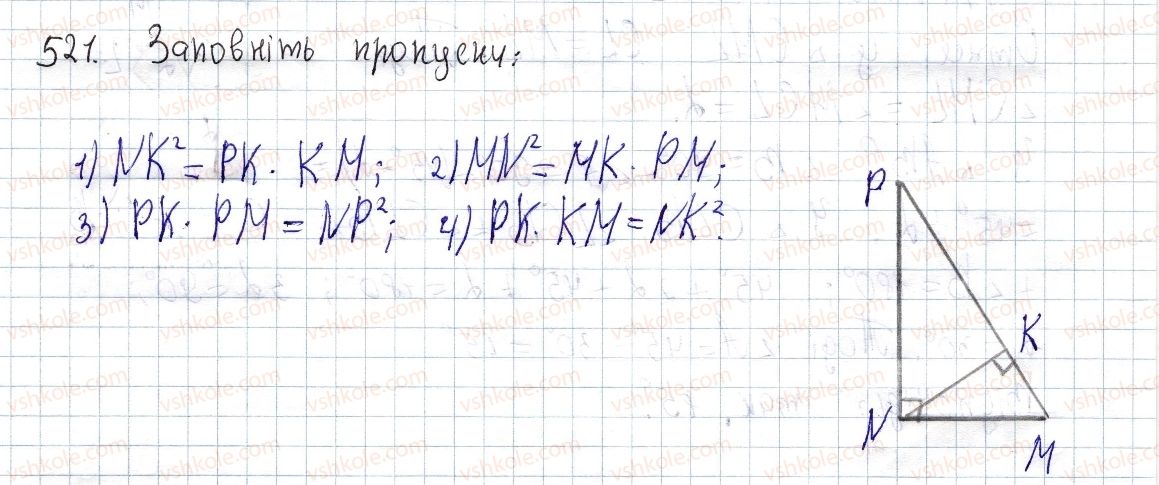 521. Заповніть пропуски:
1) NK² = PK · KM; 2) MN² = MK · PM;
3) PK · PM = NP²; 4) PK · KM = NK².
P
K
N
M